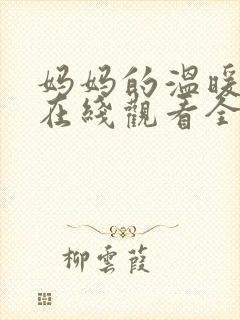 妈妈的温暖
在綫觀看全
柳雲葭